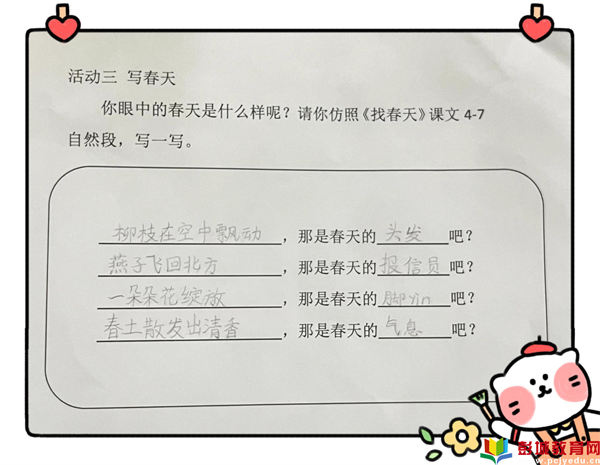 活动三 写春天
你眼中的春天是什么样呢？请你仿照《找春天》课文 4-7
自然段，写一写。
柳枝在空中飘动，那是春天的头发吧？
燕子飞回北方，那是春天的报信员吧？
一朵朵花绽放，那是春天的脚yin吧？
春土散发出清香，那是春天的气息吧？
彭城教育网
www.pcjyedu.cn